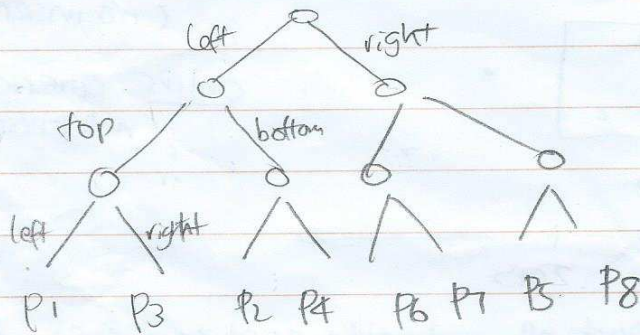 left right
top bottom
left right
P1 P3 P2 P4 P6 P7 P5 P8